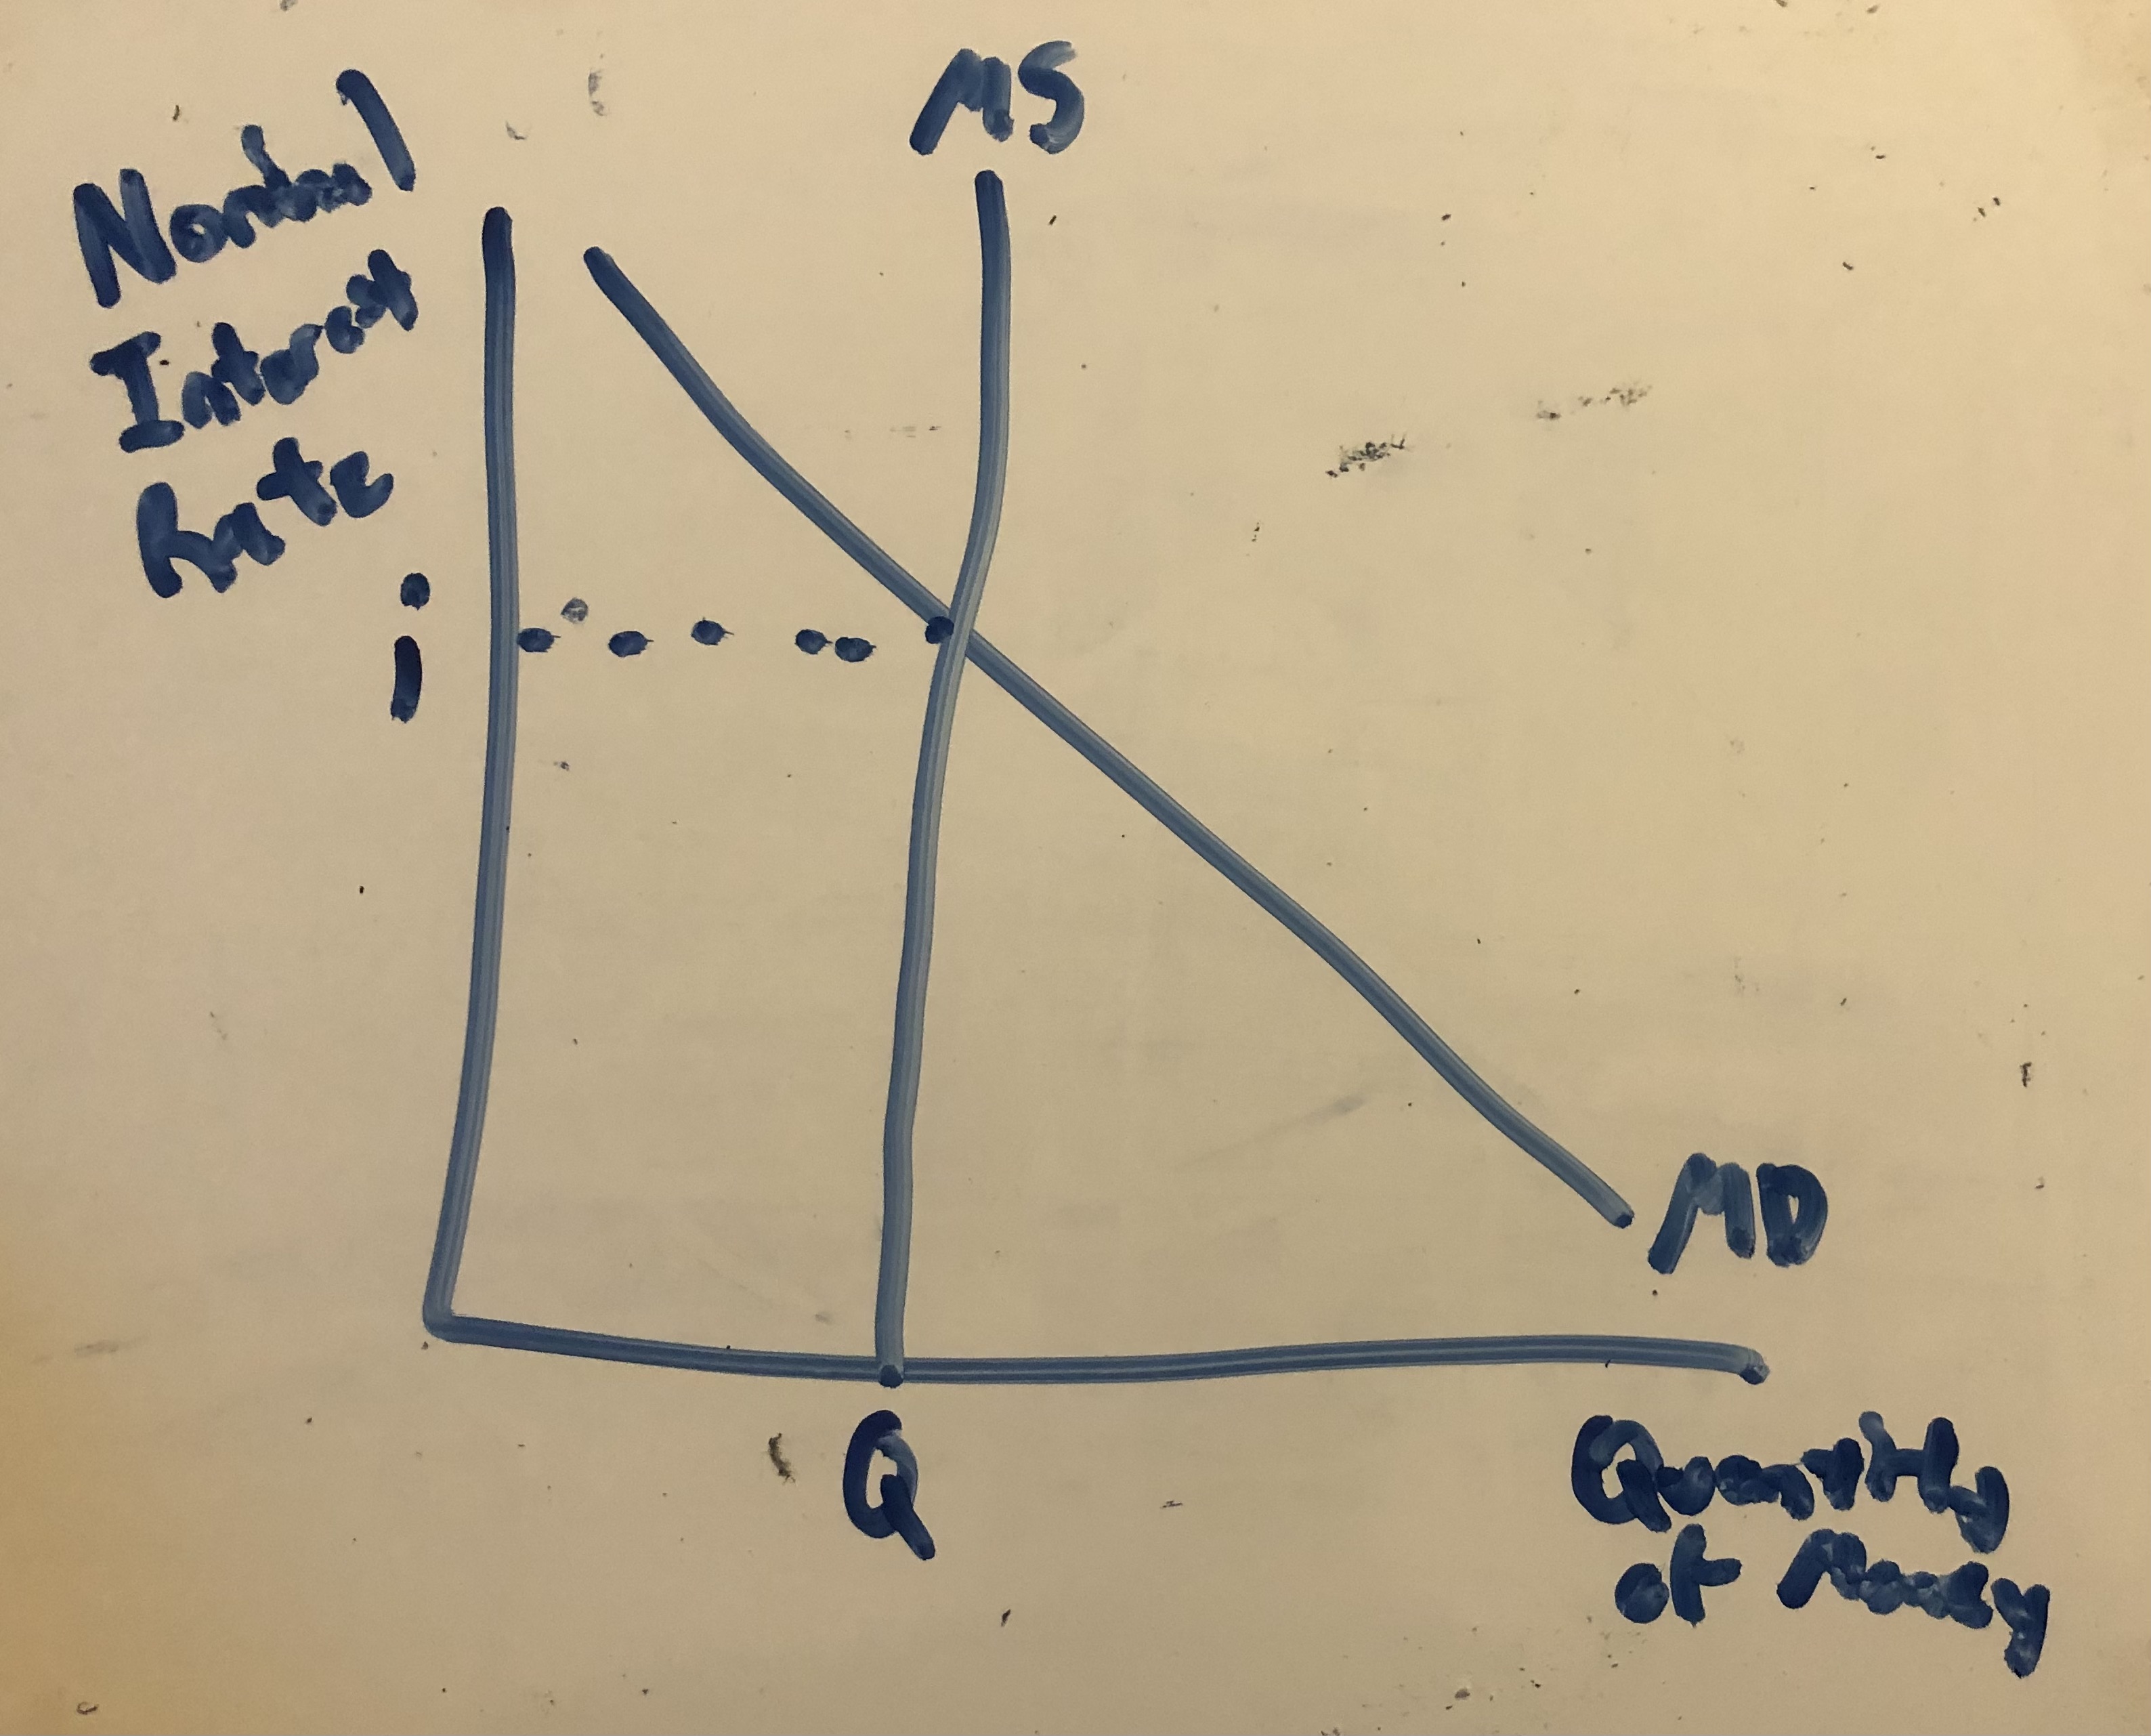 MS
Nominal
Interest
Rate
i
MD
Q
Quantity
of Money